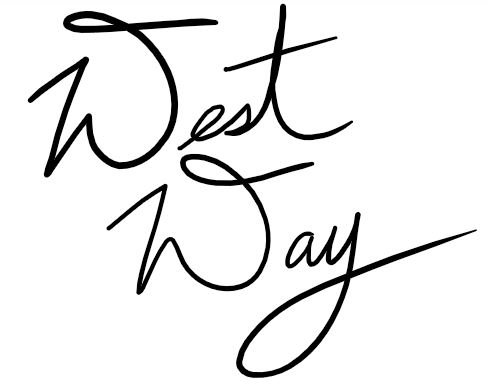 West
Way